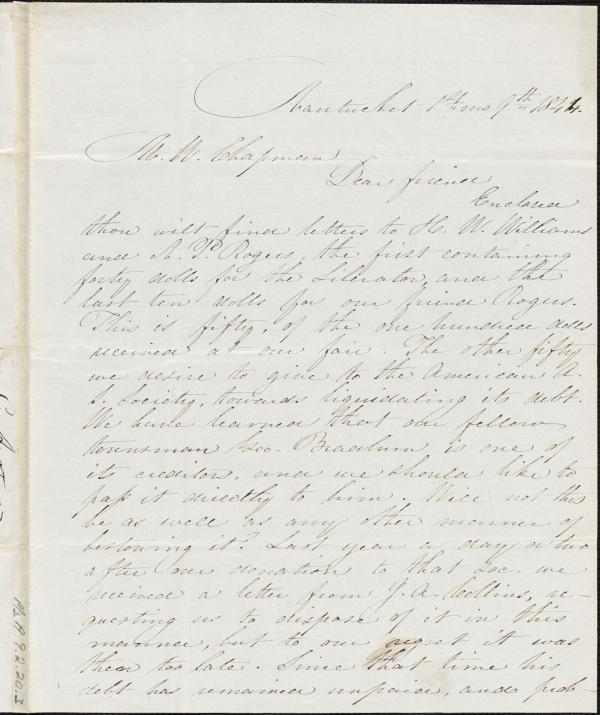 Nantucket 1st mo 9th 1844.
M. W. Chapman
Dear friend
Enclosed
thou wilt find letters to H. W. Williams
and N. P. Rogers, the first containing
forty dolls for the Liberator, and the
last ten dolls for our friend Rogers.
This is fifty, of the one hundred dolls
received at our fair. The other fifty
we desire to give to the American A.
S. Society, towards liquidating its debt.
We have learned that our fellow
townsman Geo. Bradburn is one of
its creditors, and we should like to
pass it directly to him. Will not this
be as well as any other manner of
bestowing it? Last year a day or two
after our donation to that Soc. we
received a letter from J. A. Collins, re-
questing us to dispose of it in this
manner, but to our regret it was
then too late. Since that time his
debt has remained unpaid, and prob-
Ms. A. 9.2.20.3